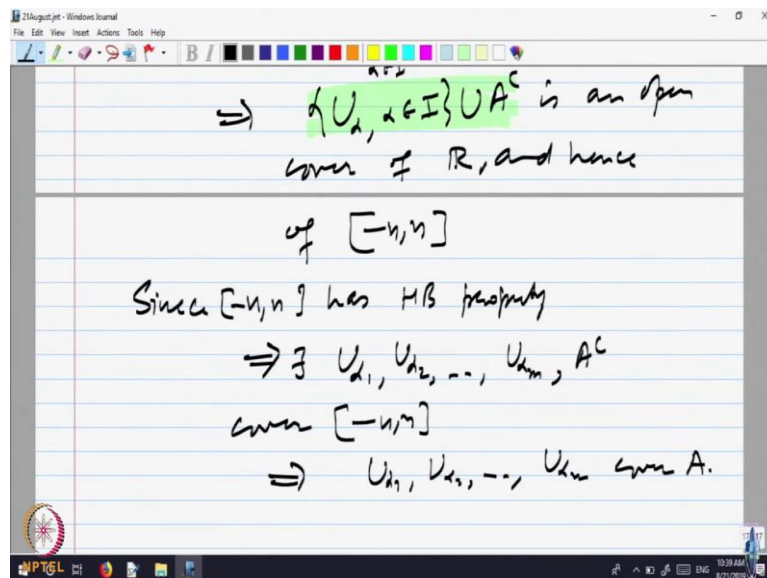 21August.jnt - Windows Journal
File Edit View Insert Actions Tools Help
B I
α∈I
⇒ {U_α, α∈I} ∪ A^c is an open
cover of ℝ, and hence
of [-n,n]
Since [-n,n] has HB property
⇒ ∃ U_α₁, U_α₂, --, U_αm, A^c
cover [-n,n]
⇒ U_α₁, U_α₂, --, U_αm cover A.
NPTEL
ENG
10:39 AM
8/21/2019